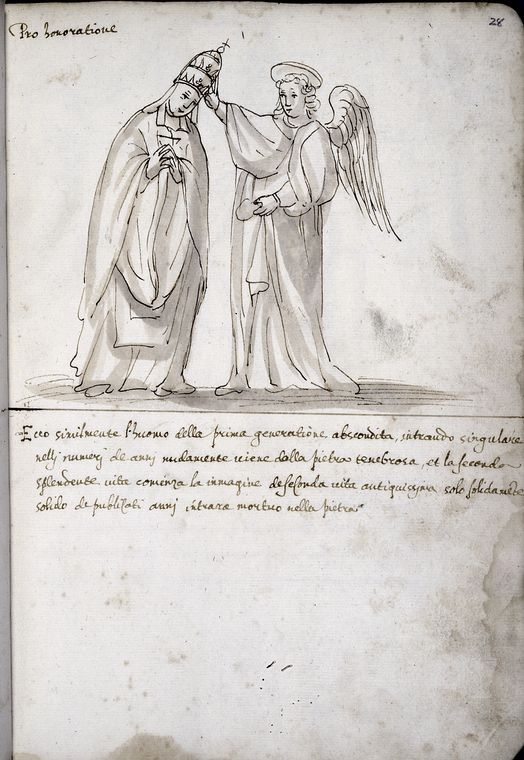 Pro honoratione
28
Ecco similmente l'huomo della prima generatione abscondita, intrando singulare
nelli numeri de anni nudamente viene dalla pietra tenebrosa, et la seconda
splendente vita comenza la inmagine de seconda vita antiquissima solo solidamẽte
solido de publicati anni intrara mortuo nella pietra